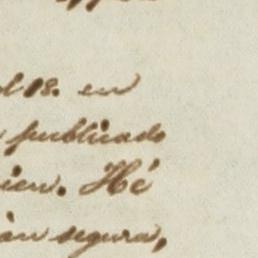 18. en
publicado
ien. Hé
àn segura,